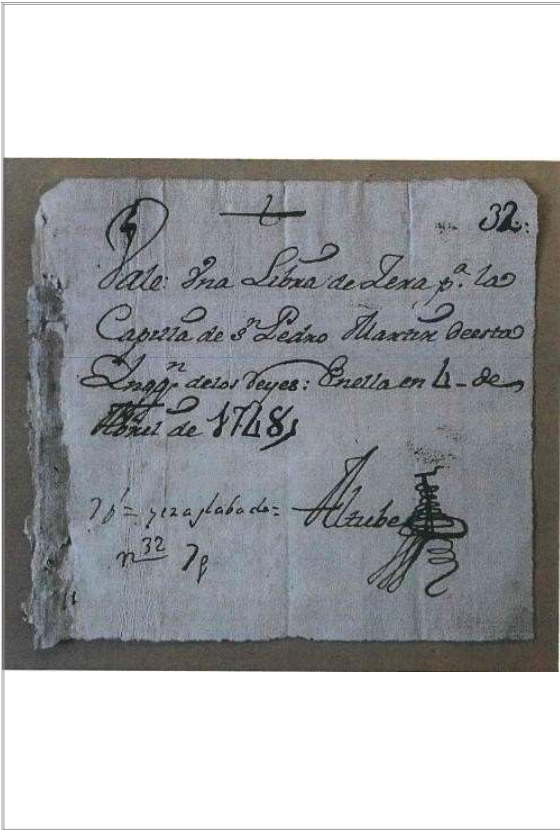 32.
Vale: Una Libra de Zera pª. la
Capilla de Sⁿ Pedro Martir deesta
Inqqⁿ. delos Reyes: Enella en 4 - de
Abril de 1748
Altube
n 32